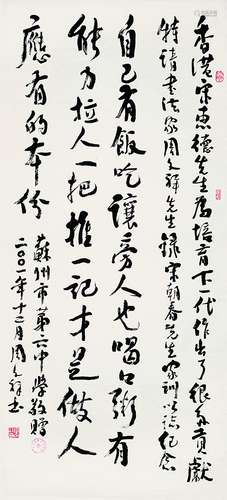 香港宋恵德先生為培育下一代作出了很多貢獻
特請書法家周文祥先生錄宋朝春先生家訓以誌紀念
自己有飯吃讓旁人也喝口粥有
能力拉人一把推一記才是做人
應有的本份
蘇州市第六中學敬贈
二〇〇一年十二月周文祥書